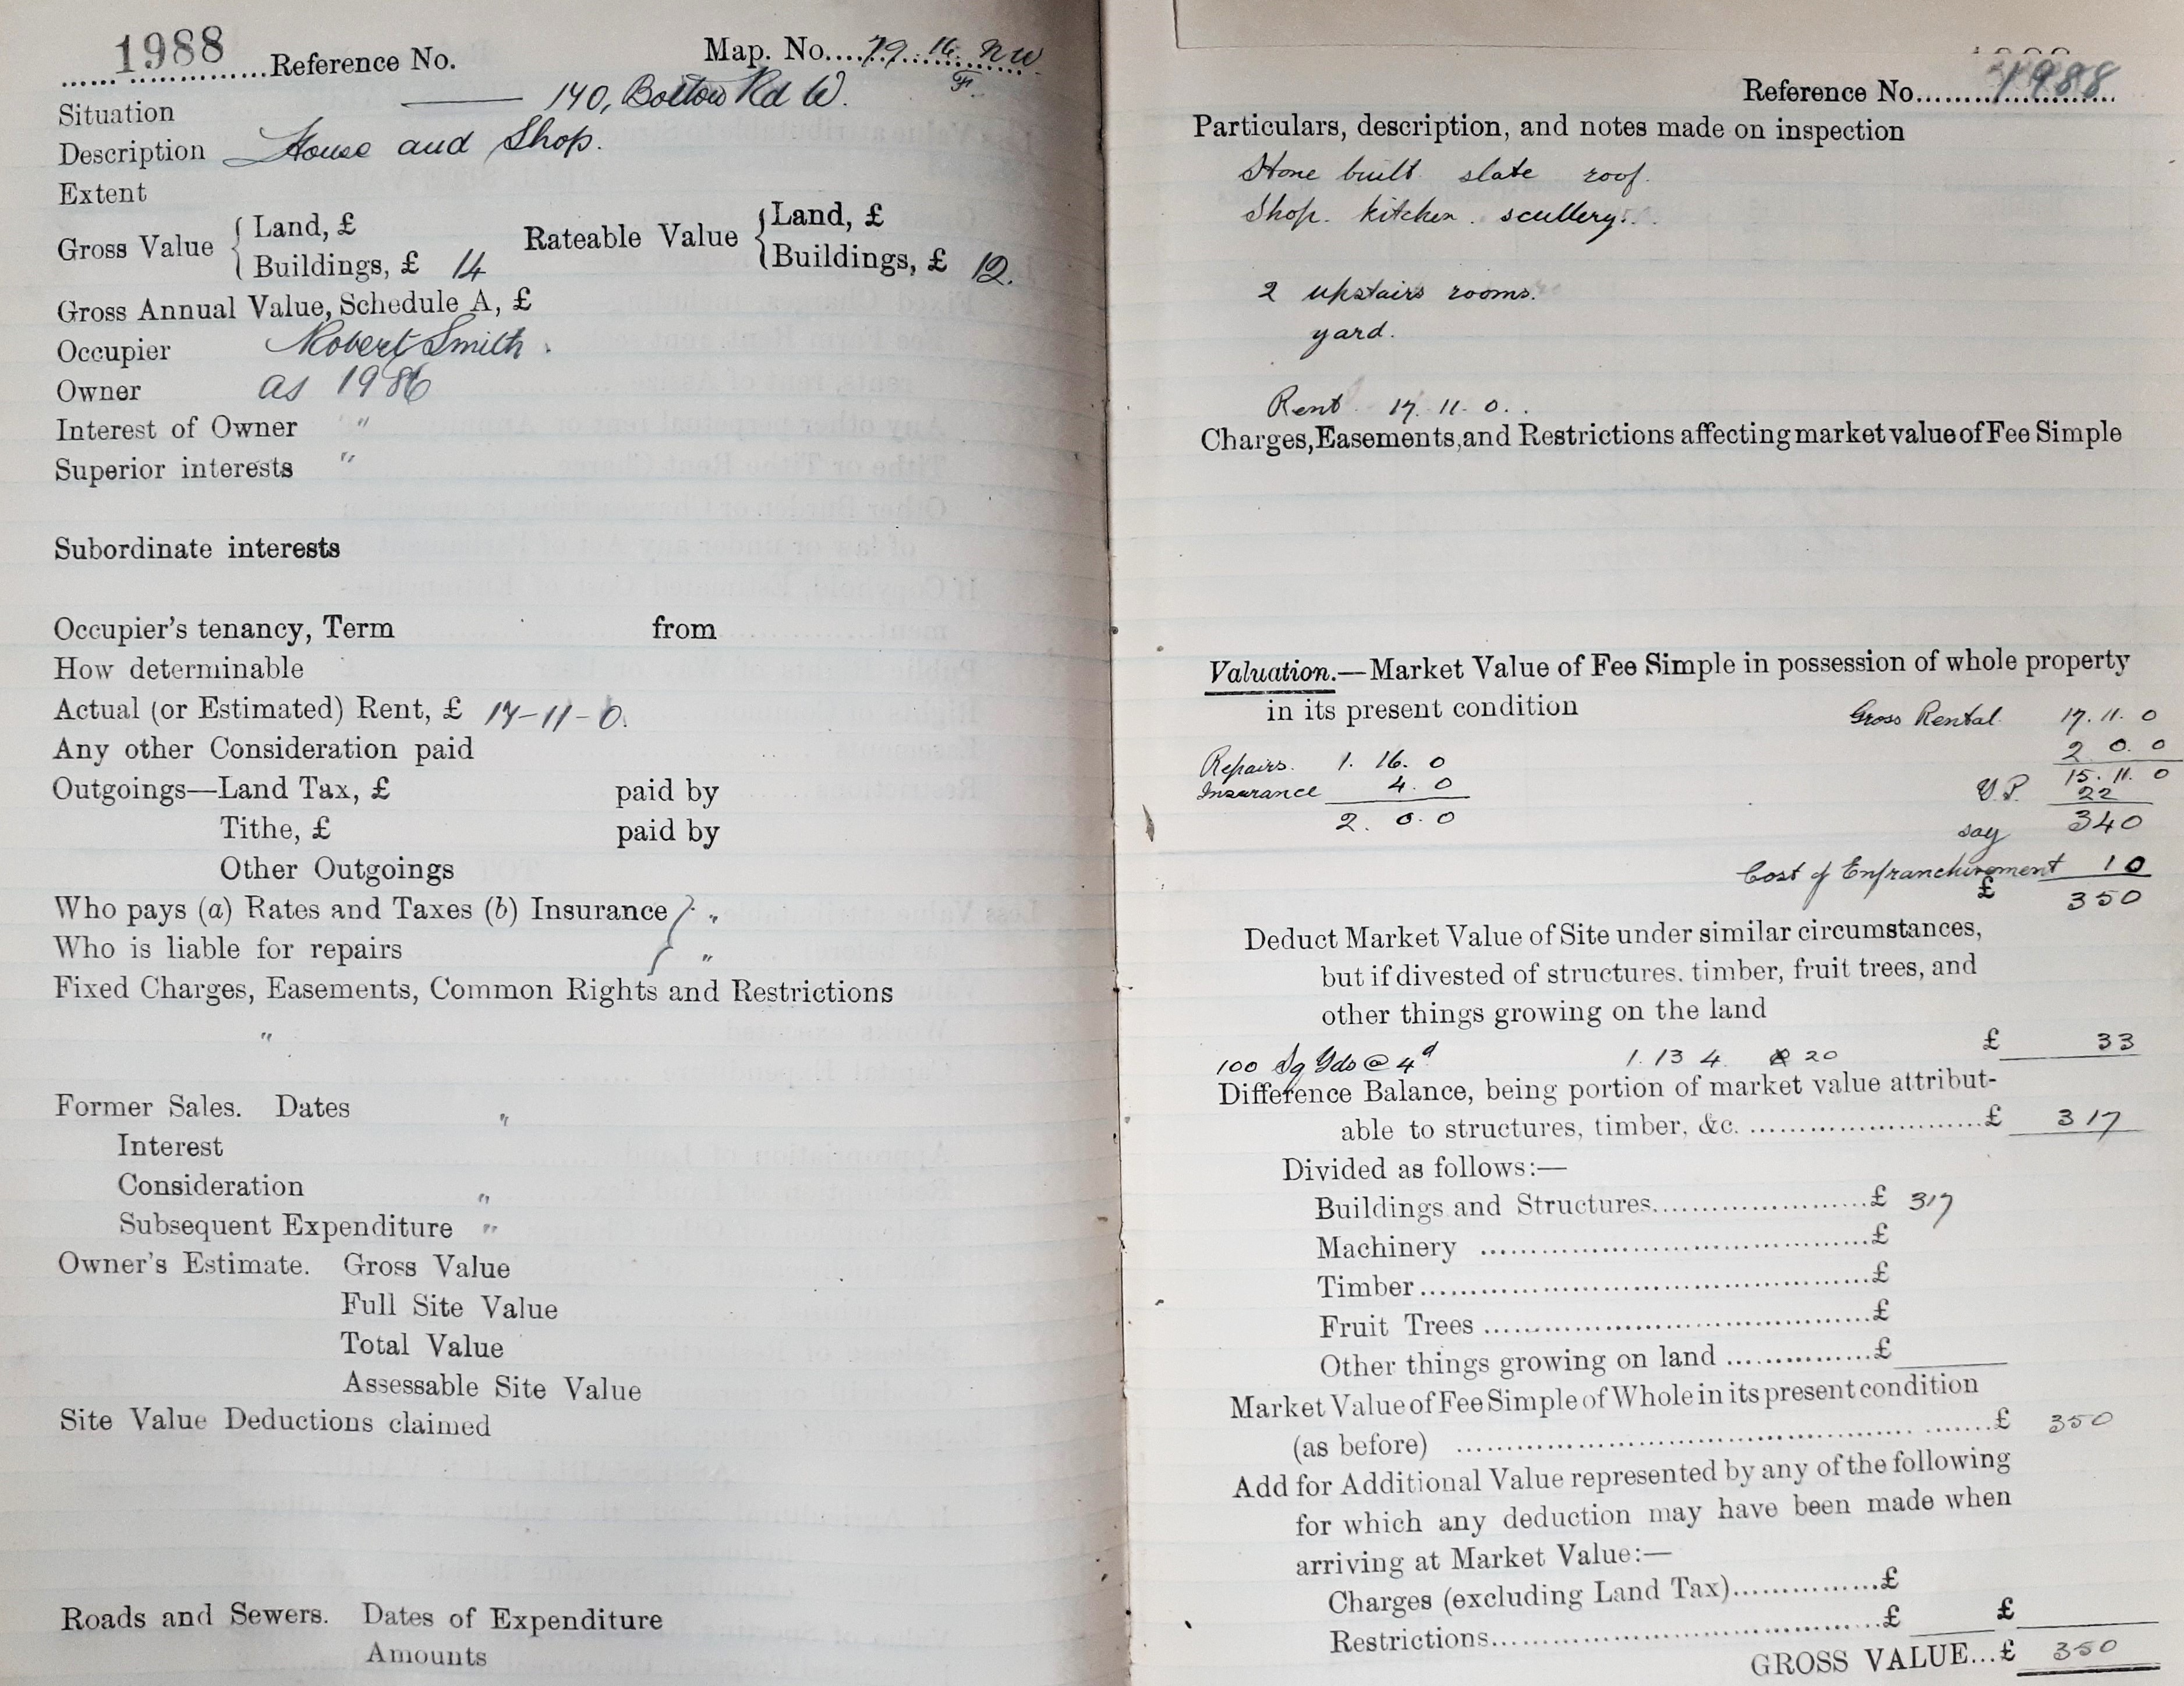 1988 Reference No. Map. No. 79. 16. NW
F.
Situation —— 140, Bolton Rd W.
Description House and Shop.
Extent
Gross Value { Land, £ Rateable Value { Land, £
Buildings, £ 14 Buildings, £ 12.
Gross Annual Value, Schedule A, £
Occupier Robert Smith.
Owner as 1986
Interest of Owner "
Superior interests "
Subordinate interests
Occupier's tenancy, Term from
How determinable
Actual (or Estimated) Rent, £ 17-11-0.
Any other Consideration paid
Outgoings—Land Tax, £ paid by
Tithe, £ paid by
Other Outgoings
Who pays (a) Rates and Taxes (b) Insurance } "
Who is liable for repairs "
Fixed Charges, Easements, Common Rights and Restrictions
"
Former Sales. Dates "
Interest
Consideration "
Subsequent Expenditure "
Owner's Estimate. Gross Value
Full Site Value
Total Value
Assessable Site Value
Site Value Deductions claimed
Roads and Sewers. Dates of Expenditure
Amounts
Reference No. 1988
Particulars, description, and notes made on inspection
Stone built slate roof.
Shop. kitchen. scullery.
2 upstairs rooms.
yard.
Rent 17. 11. 0.
Charges, Easements, and Restrictions affecting market value of Fee Simple
Valuation.—Market Value of Fee Simple in possession of whole property
in its present condition
Gross Rental 17. 11. 0
2. 0. 0
Repairs. 1. 16. 0
15. 11. 0
Insurance 4. 0
Y.P. 22
2. 0. 0
say 340
Cost of Enfranchisement 10
£ 350
Deduct Market Value of Site under similar circumstances,
but if divested of structures. timber, fruit trees, and
other things growing on the land
100 Sq Yds @ 4d 1. 13 4. 20 £ 33
Difference Balance, being portion of market value attribut-
able to structures, timber, &c. £ 317
Divided as follows:—
Buildings and Structures £ 317
Machinery £
Timber £
Fruit Trees £
Other things growing on land £
Market Value of Fee Simple of Whole in its present condition
(as before) £ 350
Add for Additional Value represented by any of the following
for which any deduction may have been made when
arriving at Market Value:—
Charges (excluding Land Tax) £
Restrictions £ £
GROSS VALUE...£ 350